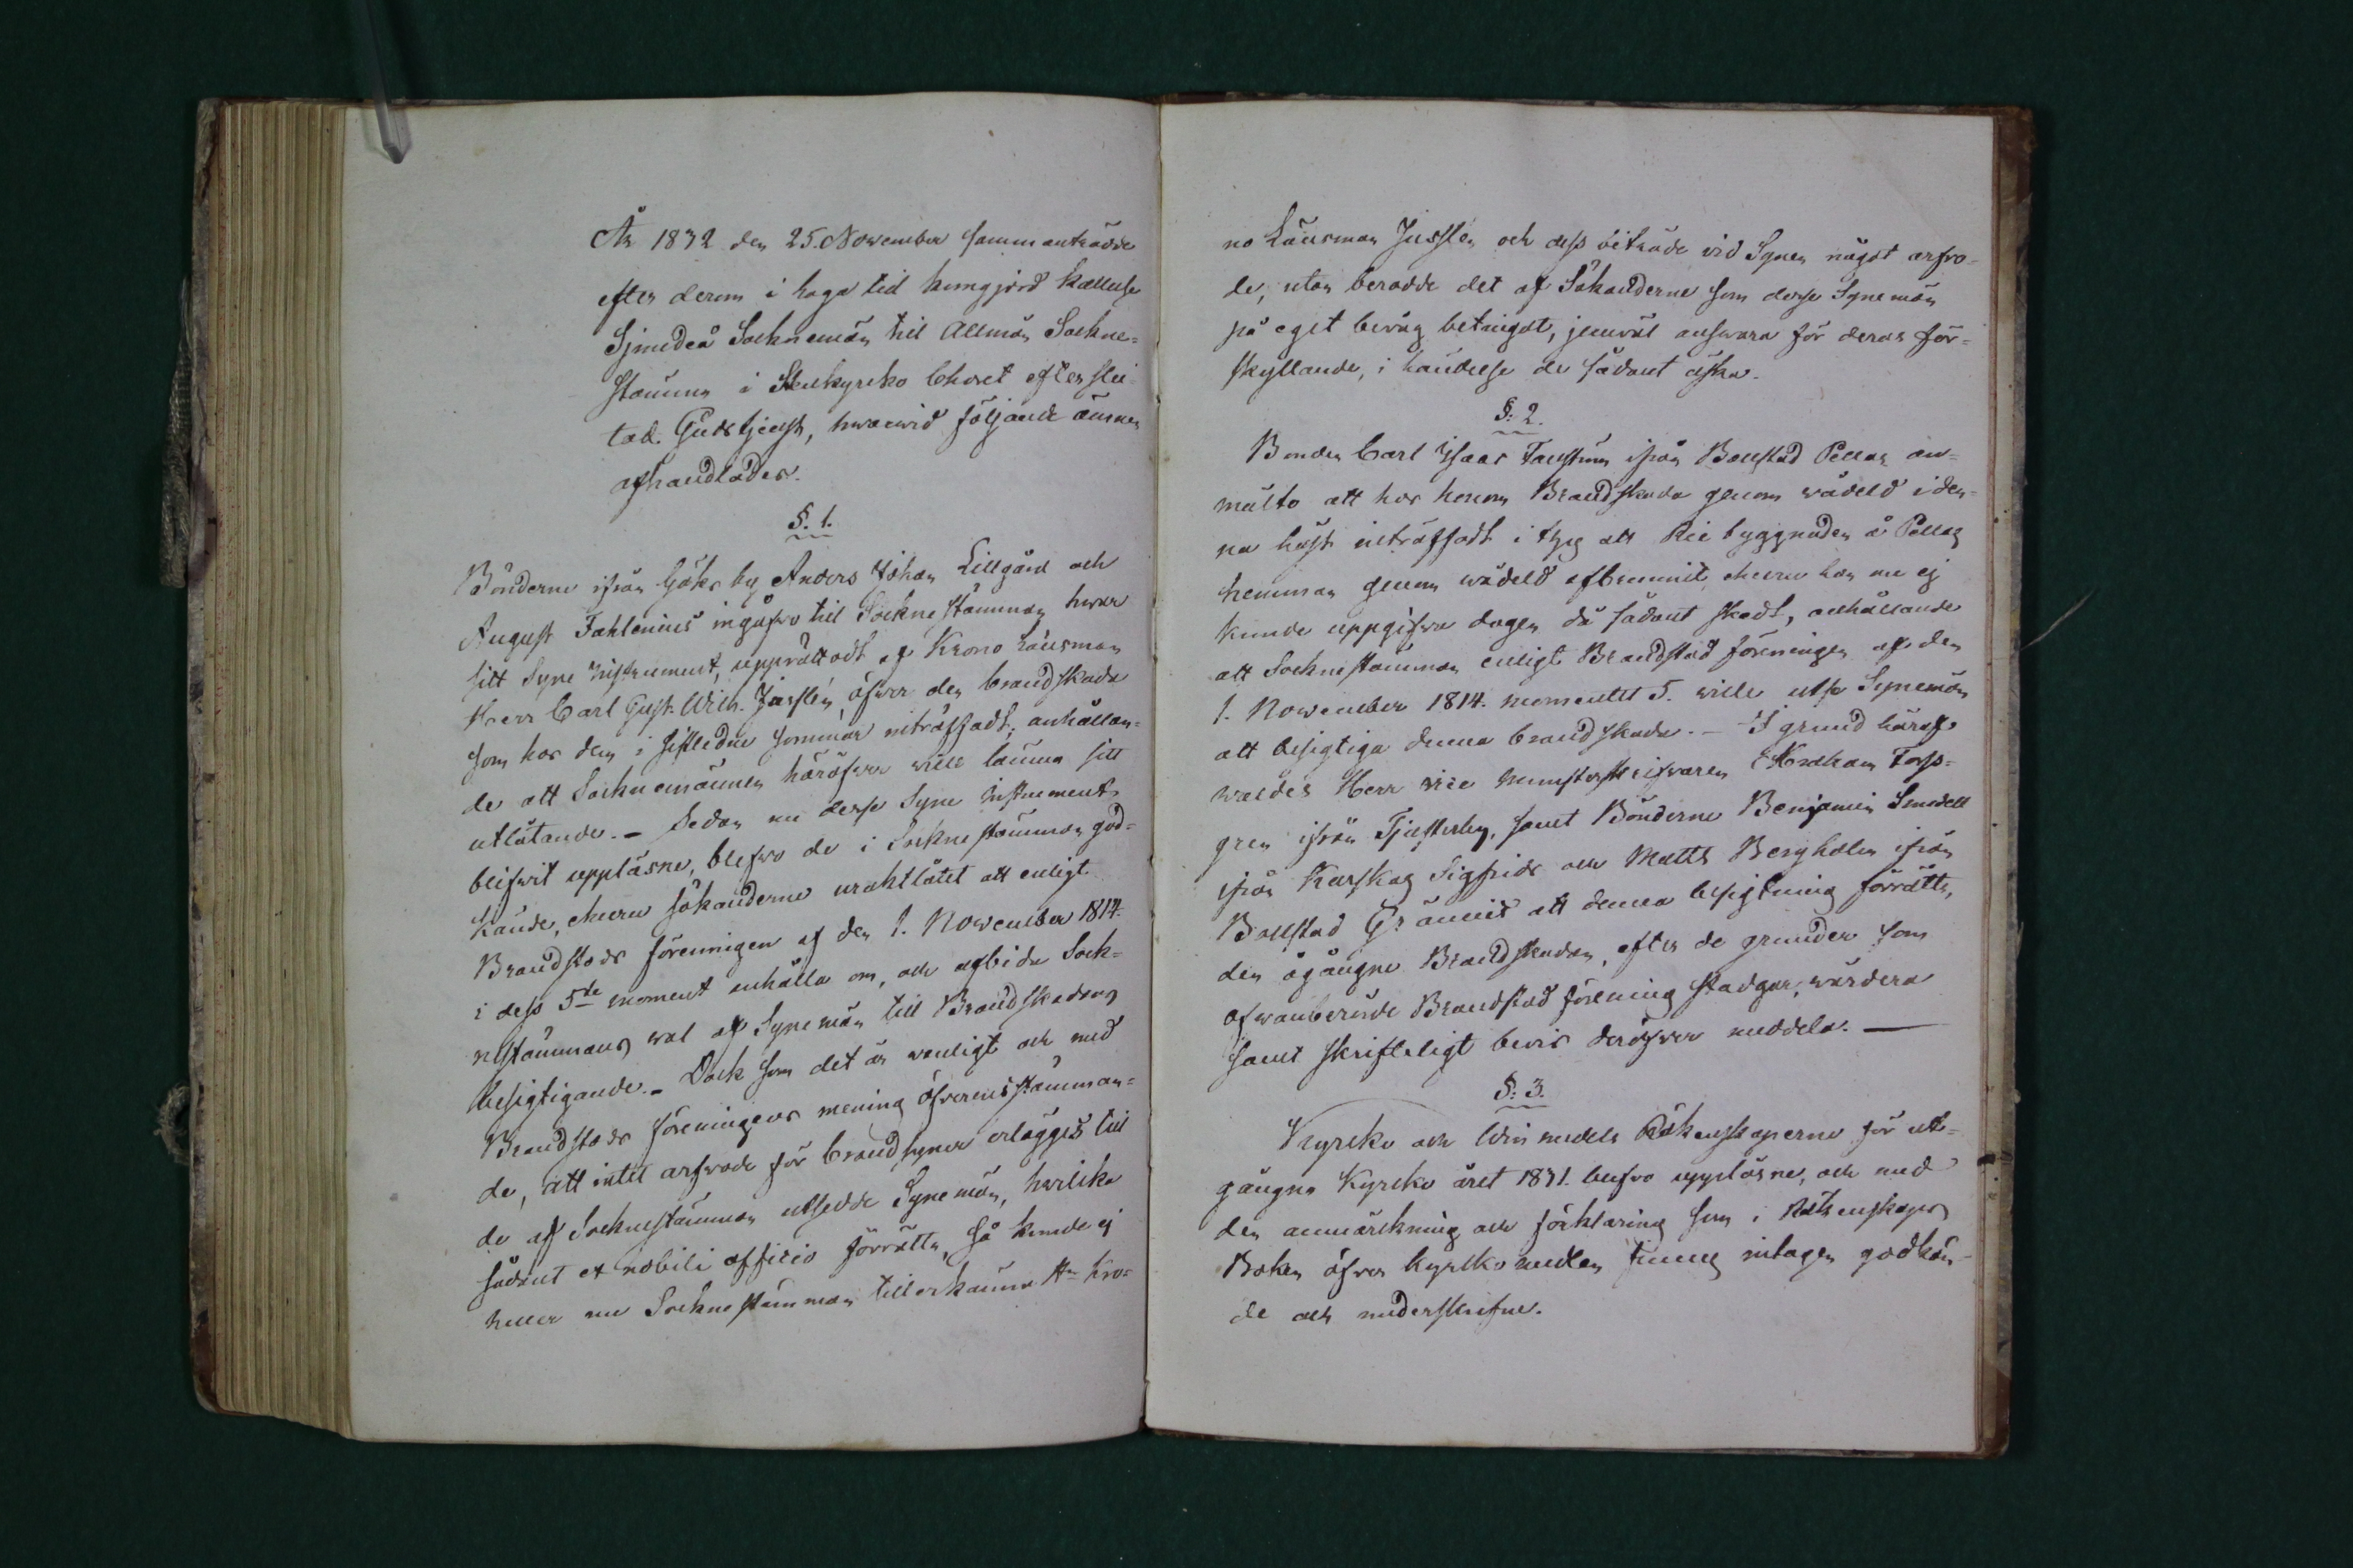 År 1832 den 25. November sammanträdde
efter derom i haga tid kungjord kallelse
Sjundeå Socknemän til Allmän Sockne=
stämma i Stenkyrko Choret efter slu=
tad. Gudstjenst, hwarwid följande ämnen
afhandlades.
§. 1.
Bönderne ifrån Göks by Anders Johan Lillgård och
August Fahlenius ingåfwo til Sockne stämman hwar
sitt Syne Instrument, upprättadt af Krono Länsman
Herr Carl Gust. Wilh. Jusslén, öfwer den brandskada
som hos dem i sistledne sommar inträffadt, anhållan=
de att Socknemännen häröfwer wille lämna sitt
utlåtande. - Sedan nu desse Syne Instrument
blifwit uppläsne, blefwo de i Sockne stämman god=
kände, ehuru sökanderne uraktlåtit att enligt
Brandstods föreningen af den 1. November 1814.
i dess 5te moment anhålla om, och afbida Sock=
nestämmans wal af Synemän till Brandskadans
besigtigande. - Dock som det är wanligt och med
Brandstods föreningens mening öfverensstämman=
de, att intet arfwode för brandsyner erlägges till
de af Socknestämman utsedde Synemän, hwilka
sådant ex nobili officio förrätta, så kunde ej
heller nu Sockne stämman tillerkänna Hr Kro=
no Länsman Jusslén och dess biträde vid Synen något arfvo=
de, utan berodde det af Sökanderne som desse Synemän
på eget bevåg betingat, jemväl answara för deras för=
skyllande, i händelse de sådant äska.
§. 2.
Bonden Carl Isaac Fauström ifrån Bollstad Pellas an=
mälte att hos honom Brandskada genom wådeld i den=
na höst inträffadt i thy att Rie byggnaden å Pellas
hemman genom wådeld afbrunnit, ehuru han nu ej
kunde uppgifva dagen då sådant skedt, anhållande
att Socknestämman enligt Brandstod föreningen af den
1. November 1814. momentet 5. wille utse Synemän
att besigtiga denna brandskada. - I grund häraf
waldes Herr vice Munsterskrifvaren Abraham Forss=
gren ifrån Tjusterby, samt Bönderne Benjamin Smedell
ifrån Karskog Sigfrids och Matts Bergholm ifrån
Bollstad Grännis att denna besigtning förrätta,
den ågångne Brandskadan, efter de grunder som
ofvanberörde Brandstod förening stadgar, wärdera
samt skrifteligt bevis deröfver meddela. -
§. 3.
Kyrcko och Winmedels Räkenskaperne för ut=
gångne Kyrcko året 1831. blefvo uppläsne, och med
den anmärckning och förklaring som i Räkenskaps
Boken öfver kyrckomedlen finnes intagen godkän=
de och underskrifne.